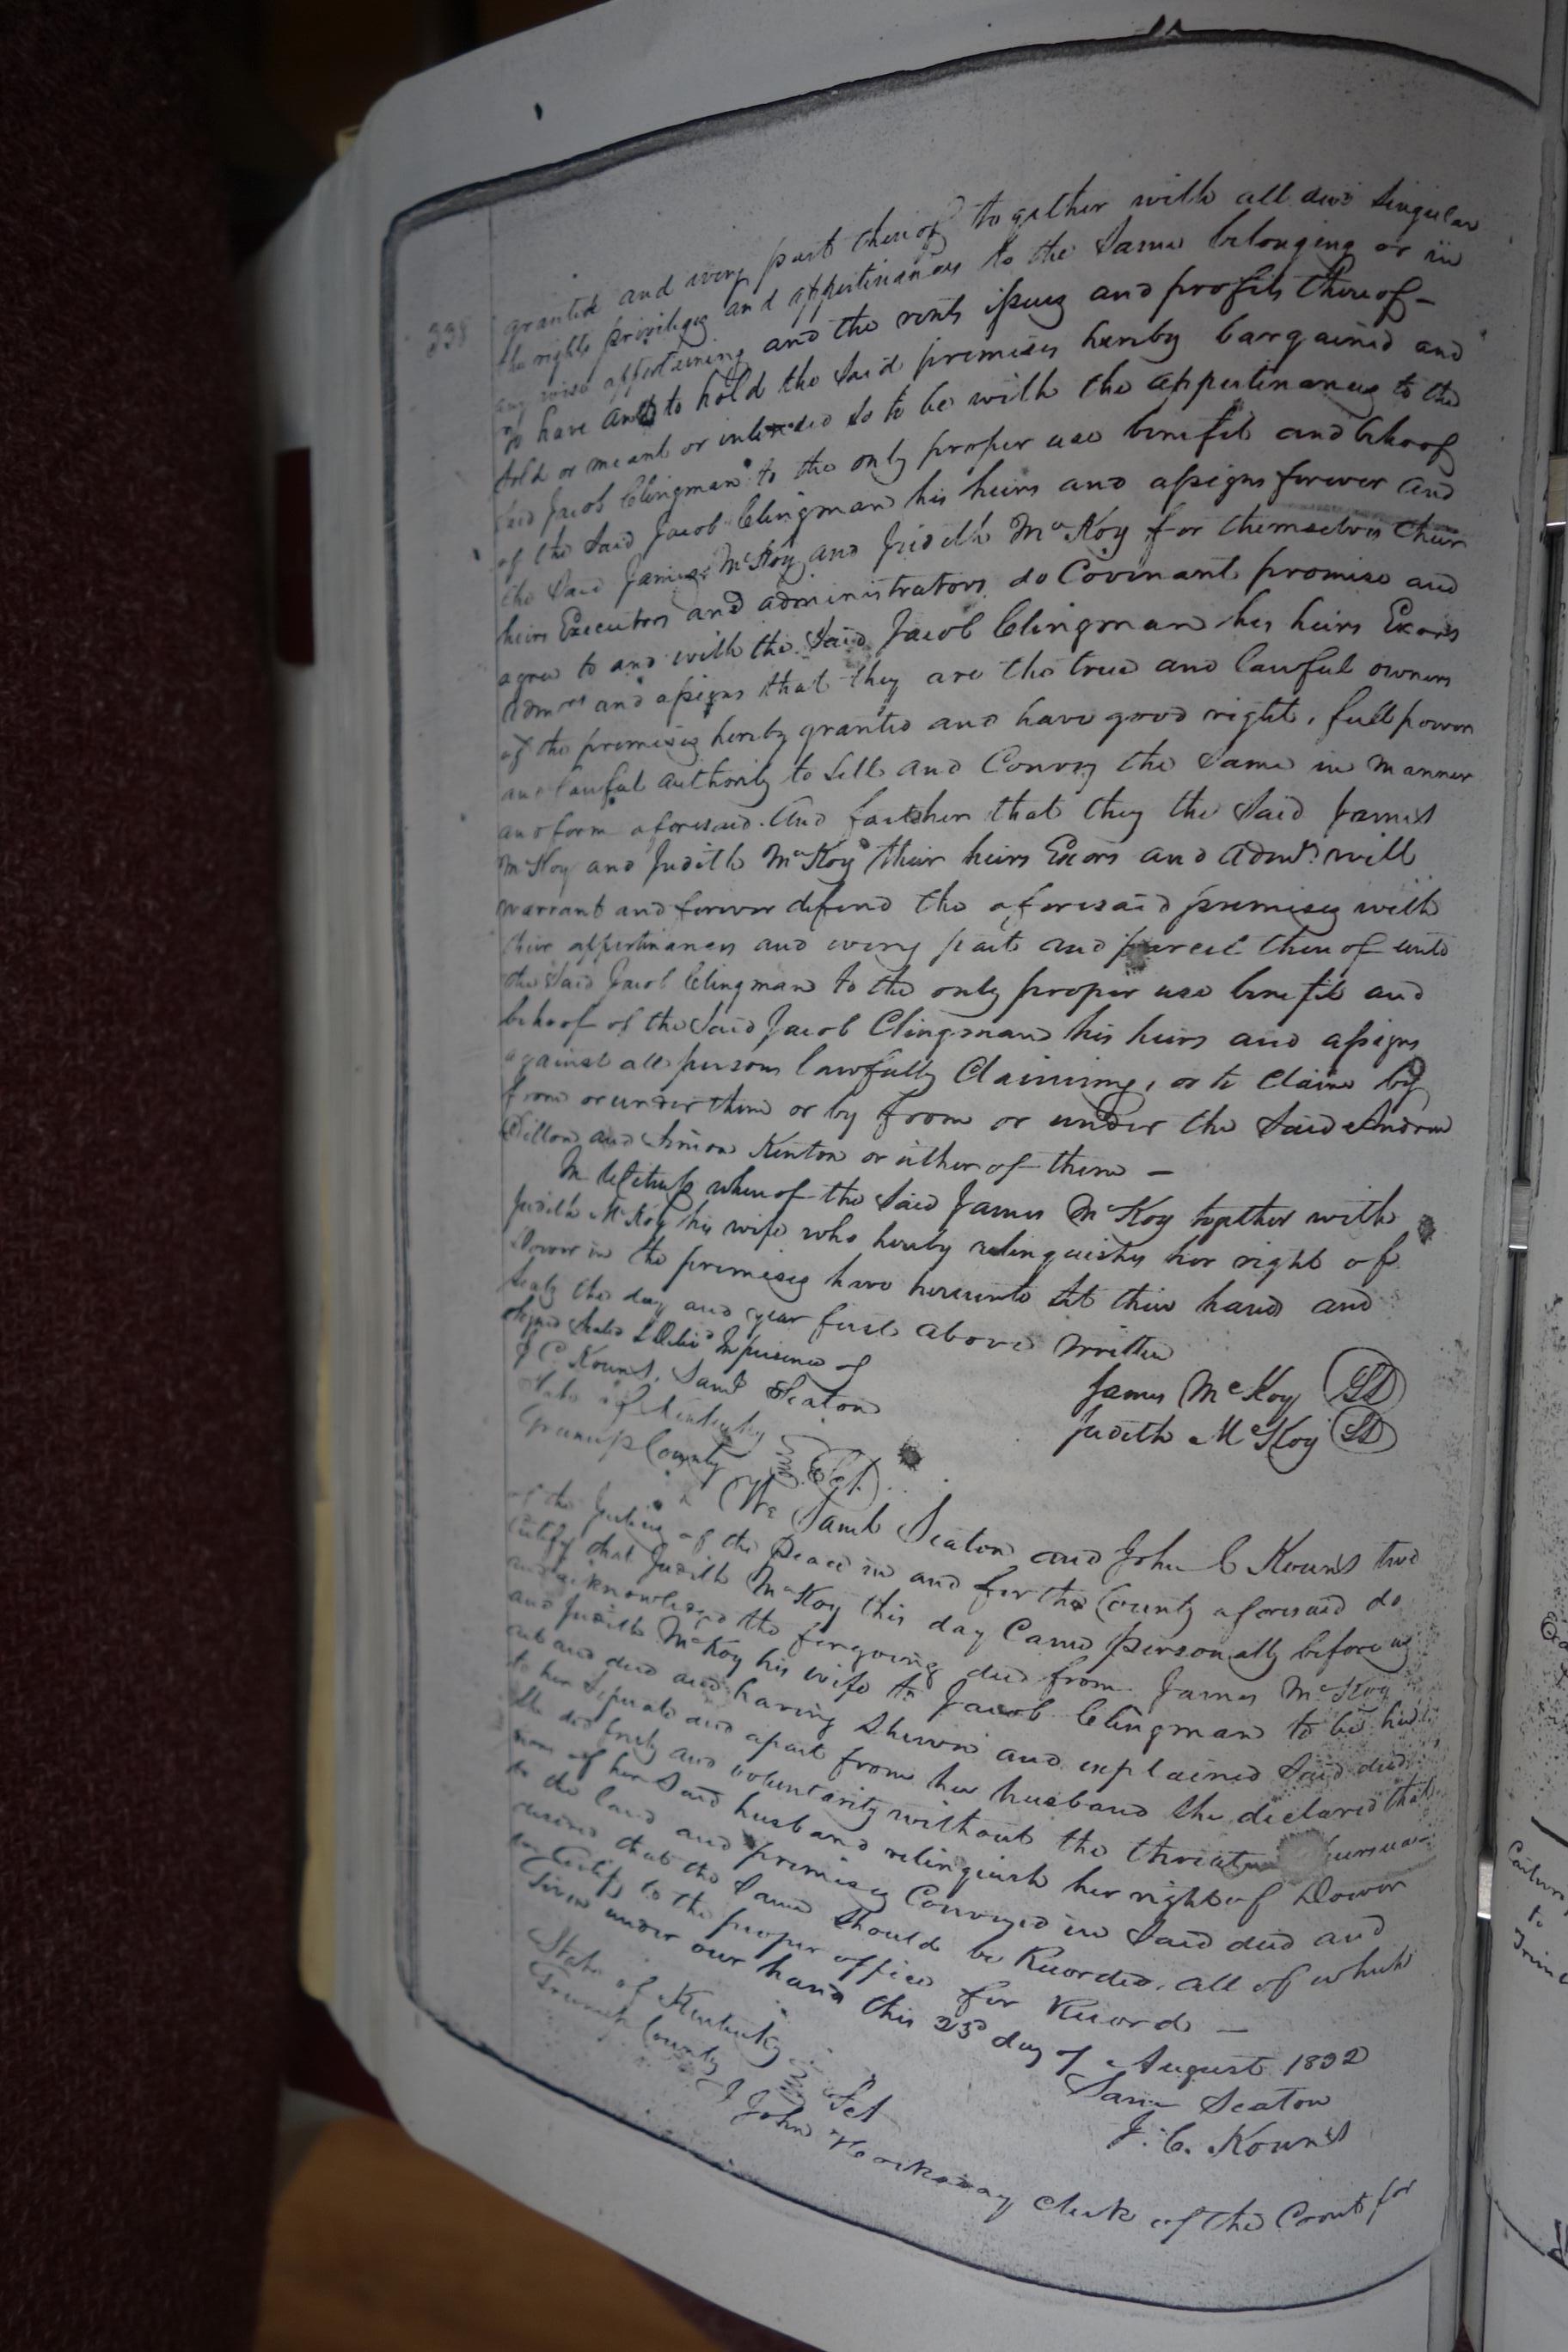 338
granted and every part thereof together with all and Singular
the rights priviliges and appertinances to the Same belonging or in
any wise appertaining and the rents issues and profits thereof—
To have and to hold the Said premises hereby bargained and
Sold or meant or intended So to be with the appertinances to the
Said Jacob Clingman to the only proper use benefit and behoof
of the Said Jacob Clingman his heirs and assigns forever and
the Said James McKoy and Judith McKoy for themselves their
heirs Executors and administrators do Covenant promise and
agree to and with the Said Jacob Clingman his heirs Exors
Admrs and assigns that they are the true and lawful owners
of the premises hereby granted and have good right, full power
and lawful authority to Sell and Convey the Same in manner
and form aforesaid. And farther that they the Said James
McKoy and Judith McKoy their heirs Exors and Admrs will
warrant and forever defend the aforesaid premises with
their appertinances and every part and parcel thereof unto
the Said Jacob Clingman to the only proper use benefit and
behoof of the Said Jacob Clingman his heirs and assigns
against all persons lawfully Claiming, or to Claim by
from or under them or by from or under the Said Andrew
Dillon and Simon Kenton or either of them —
In Witness whereof the Said James McKoy together with
Judith McKoy his wife who hereby relinquishes her right of
Dower in the premises have hereunto Set their hand and
Seals the day and year first above written
Signed Sealed & Delivd In presence of
J C. Kouns, Saml Seaton
James McKoy LS
Judith McKoy LS
State of Kentucky
Greenup County Sct.
We Saml Seaton and John C Kouns two
of the Justices of the Peace in and for the County aforesaid do
Certify that Judith McKoy this day Came personally before us
and acknowledged the forgoing deed from James McKoy
and Judith McKoy his wife to Jacob Clingman to be her
act and deed and having Shewn and explained Said deed
to her Seperate and apart from her husband She declared that
She did freely and voluntarily without the threats
of her Said husband relinguish her right of Dower
in the land and premises Conveyed in Said deed and
desired that the Same Should be Recorded. all of which
we Certify to the proper office for Record —
Given under our hand this 23d day of August 1832
Saml Seaton
J. C. Kouns
State of Kentucky
Greenup County Sct
I John Hockaday Clerk of the Court for